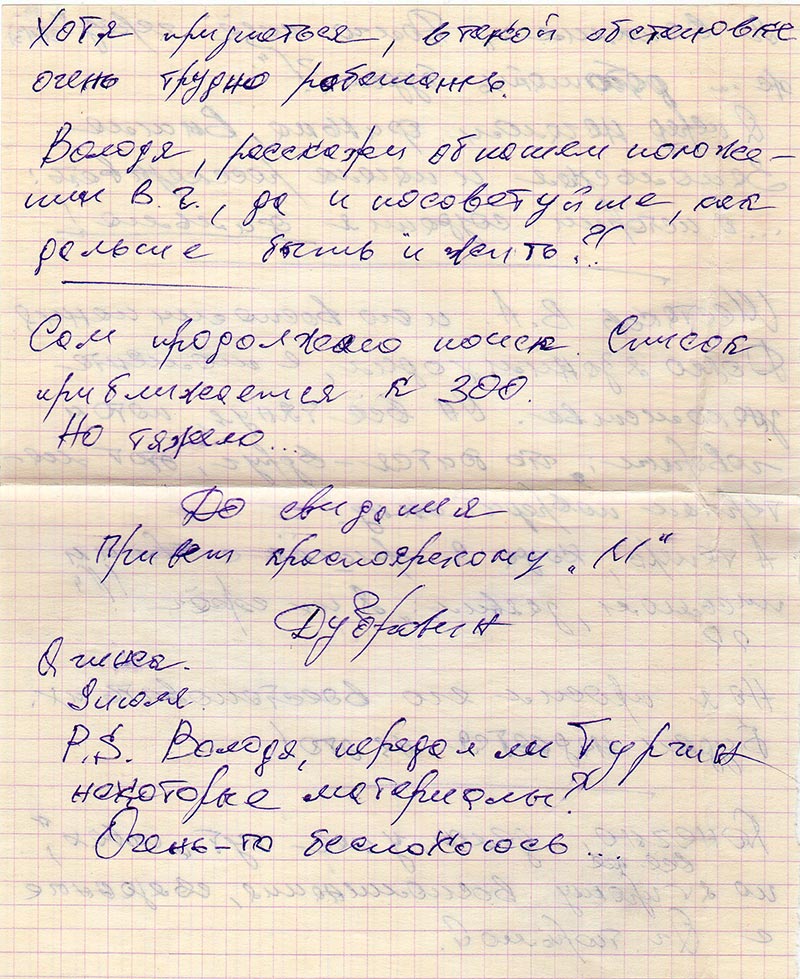 Хотя признаться, в такой обстановке
очень трудно работать.
Володя, расскажи об нашем положе-
нии В.Г., да и посоветуйте, как
дальше быть и жить?!
Сам продолжаю поиск. Список
приближается к 300.
Но тяжело...
До свидания
Привет красноярскому „М“
Дубровин
Игарка.
9 июля.
P.S. Володя, передал ли Турчин
некоторые материалы?
Очень-то беспокоюсь...